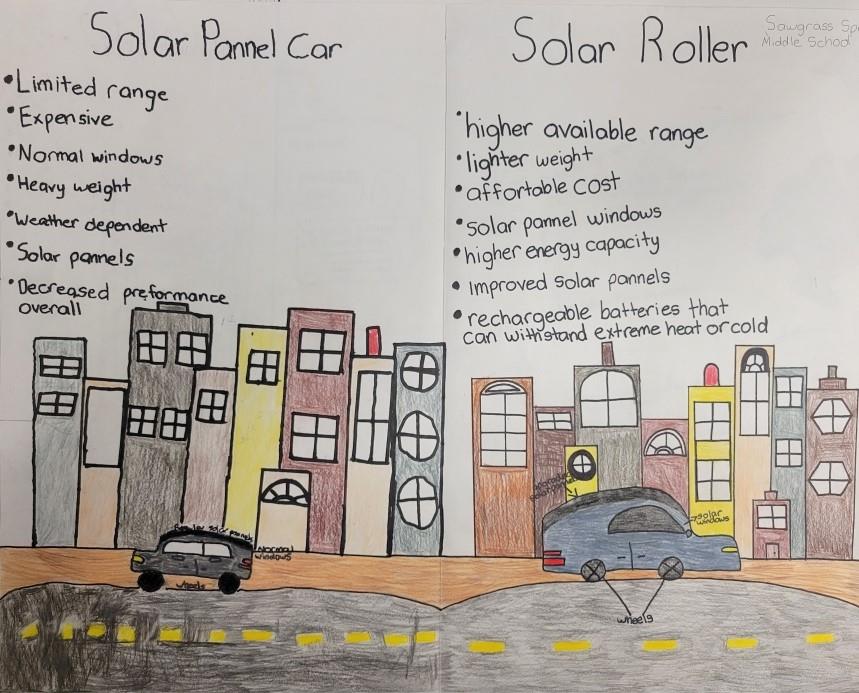 Solar Pannel Car
• Limited range
• Expensive
• Normal windows
• Heavy weight
• Weather dependent
• Solar pannels
• Decreased preformance
overall
Normal
windows
wheels
Solar Roller
Sawgrass Sp
Middle School
• higher available range
• lighter weight
• affortable cost
• solar pannel windows
• higher energy capacity
• Improved solar pannels
• rechargeable batteries that
can withstand extreme heat or cold
solar
windows
wheels